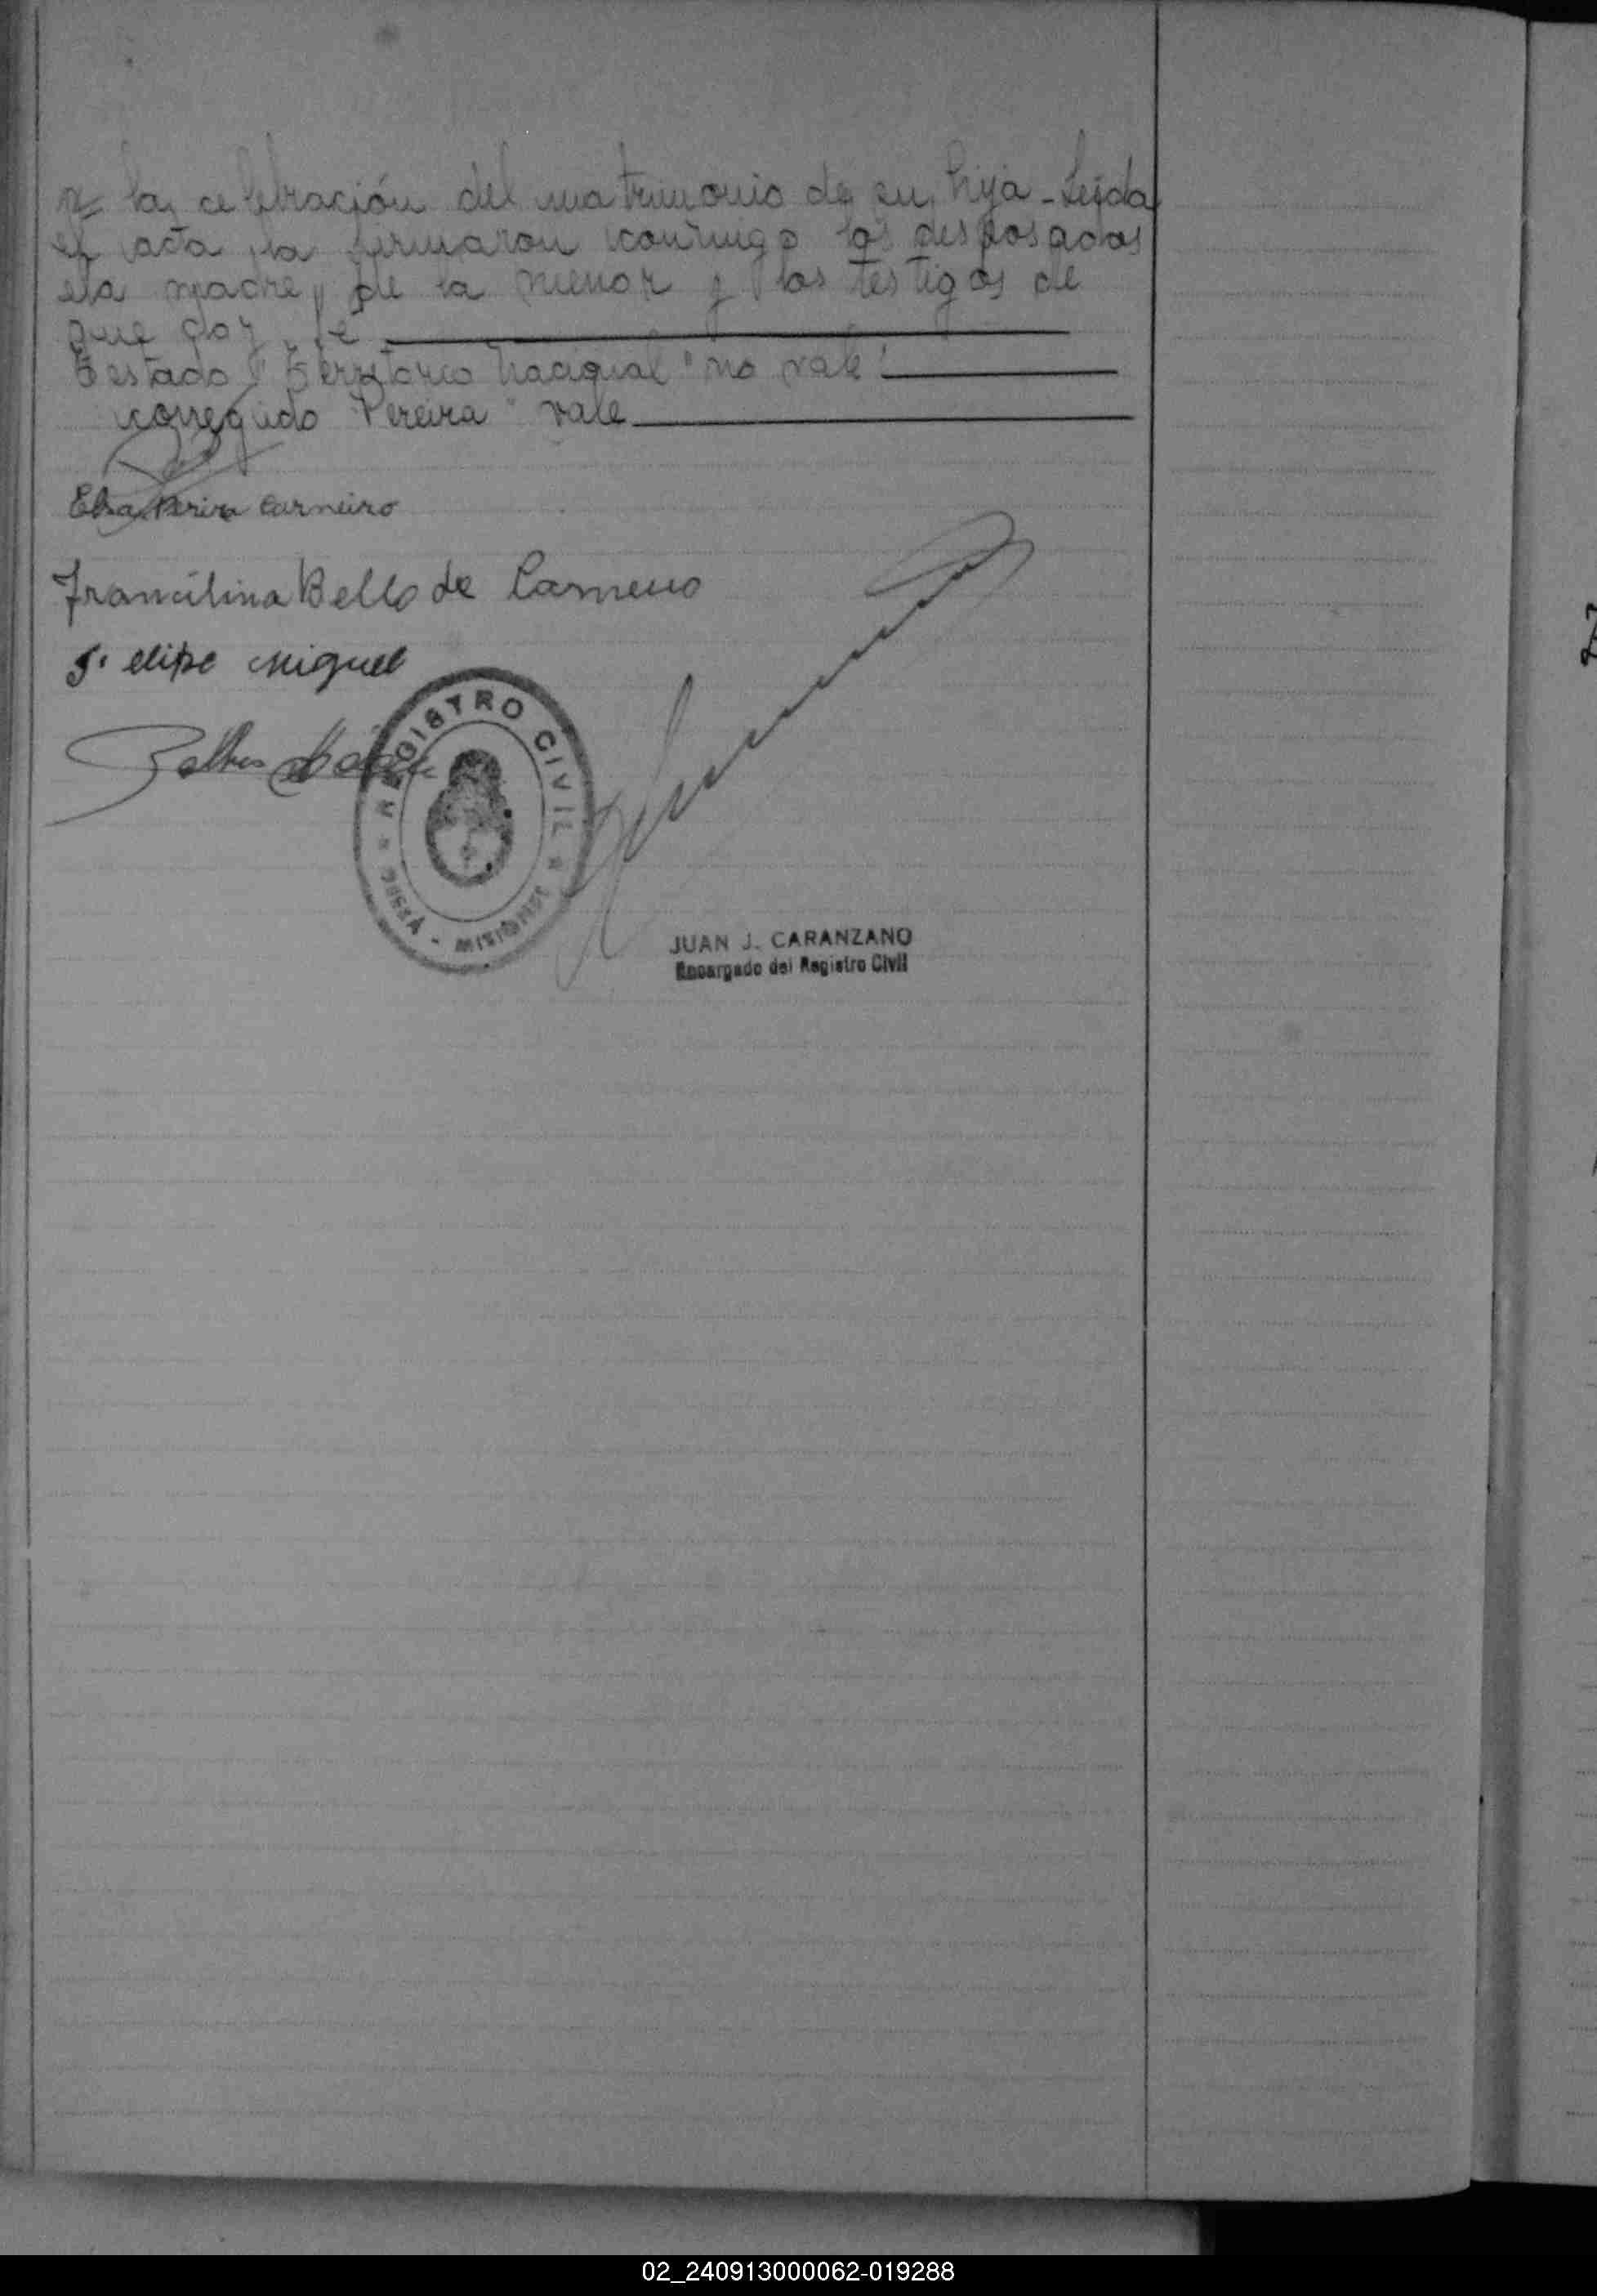 la celebración del matrimonio de su hija - Leída
el acta la firmaron conmigo los desposados
la madre de la menor y los testigos de
que doy fe
Testado "Territorio Nacional" no vale
corregido "Pereira" vale
Elsa Carneiro
Francilina Bello de Carneiro
Felipe Miguel
REGISTRO CIVIL
MISIONES
JUAN J. CARANZANO
Encargado del Registro Civil
02_240913000062-019288